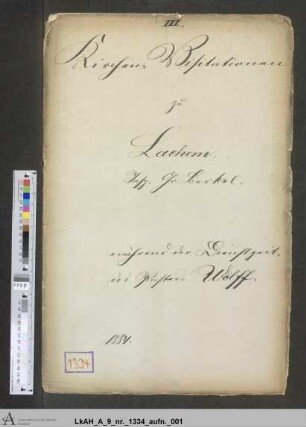 III.
Kirchen-Visitationen
zu
Lachem.
Insp. Gr. Berkel.
während der Dienstzeit
des Pastors Wolff.
1884.
1334
LkAH_A_9_nr._1334_aufn._001